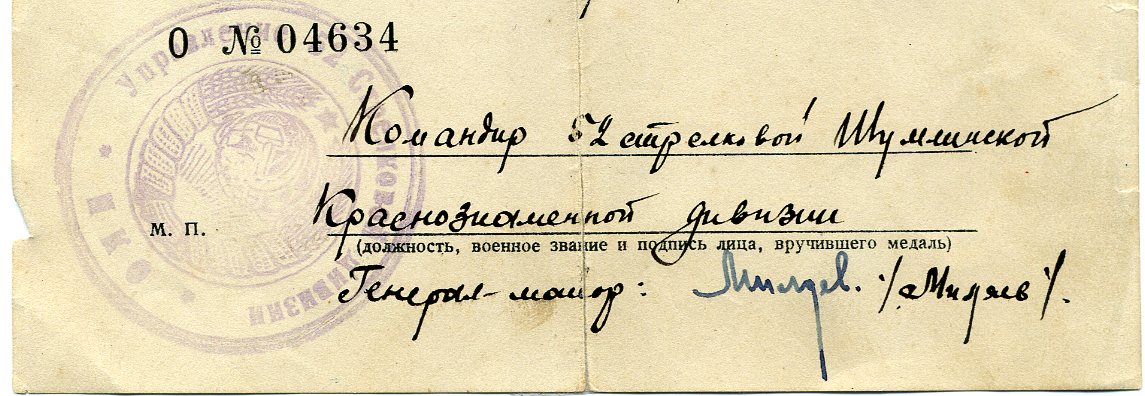 О № 04634
Управление 52 Стрелковой Дивизии
Командир 52 стрелковой Шумлинской
М. П.
Краснознаменной дивизии
(должность, военное звание и подпись лица, вручившего медаль)
Генерал-майор: Миляев. /Миляев/.